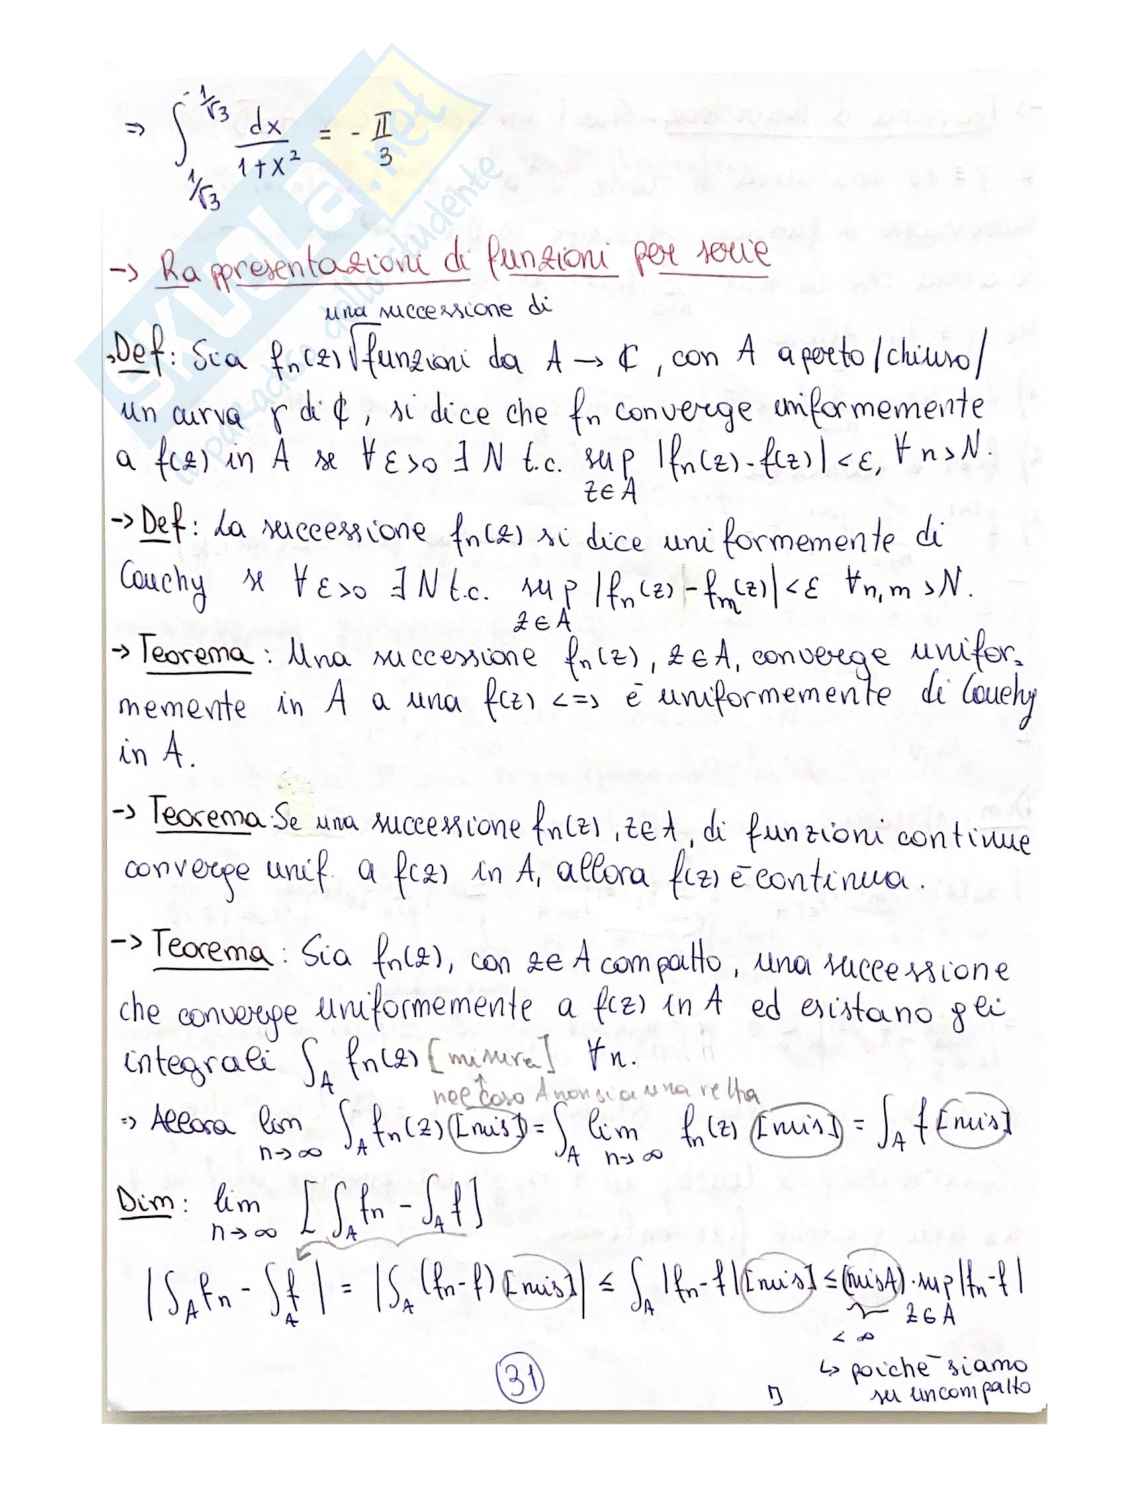 ⇒ ∫_{1/√3}^{-1/√3} dx/(1+x²) = - π/3
SKUOLA.net
il paradiso dello studente
→ Rappresentazioni di funzioni per serie
una successione di
→Def: Sia fn(z) √funzioni da A → ₵, con A aperto/chiuso/
un curva γ di ₵, si dice che fn converge uniformemente
a f(z) in A se ∀ε>0 ∃ N t.c. sup |fn(z)-f(z)|<ε, ∀n>N.
z∈A
→Def: La successione fn(z) si dice uniformemente di
Cauchy se ∀ε>0 ∃N t.c. sup |fn(z)-fm(z)|<ε ∀n,m>N.
z∈A
→Teorema: Una successione fn(z), z∈A, converge unifor-
memente in A a una f(z) <=> è uniformemente di Cauchy
in A.
→ Teorema: Se una successione fn(z), z∈A, di funzioni continue
converge unif. a f(z) in A, allora f(z) è continua.
→ Teorema: Sia fn(z), con z∈A compatto, una successione
che converge uniformemente a f(z) in A ed esistano gli
integrali ∫_A fn(z) [misura] ∀n.
nel caso A non sia una retta
⇒ Allora lim_{n→∞} ∫_A fn(z)[mis] = ∫_A lim_{n→∞} fn(z) [mis] = ∫_A f [mis]
Dim: lim_{n→∞} [∫_A fn - ∫_A f]
|∫_A fn - ∫_A f| = |∫_A (fn-f)[mis]| ≤ ∫_A |fn-f|[mis] ≤ (misA)·sup|fn-f|
z∈A
< ∞
↳ poichè siamo
su un compatto
31